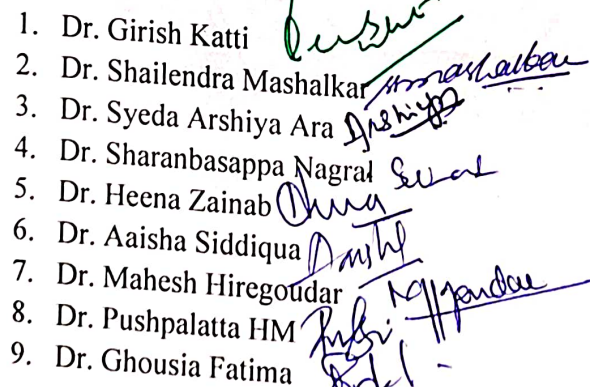 1. Dr. Girish Katti
2. Dr. Shailendra Mashalkar
3. Dr. Syeda Arshiya Ara Arshiya
4. Dr. Sharanbasappa Nagral
5. Dr. Heena Zainab
6. Dr. Aaisha Siddiqua
7. Dr. Mahesh Hiregoudar
8. Dr. Pushpalatta HM
9. Dr. Ghousia Fatima